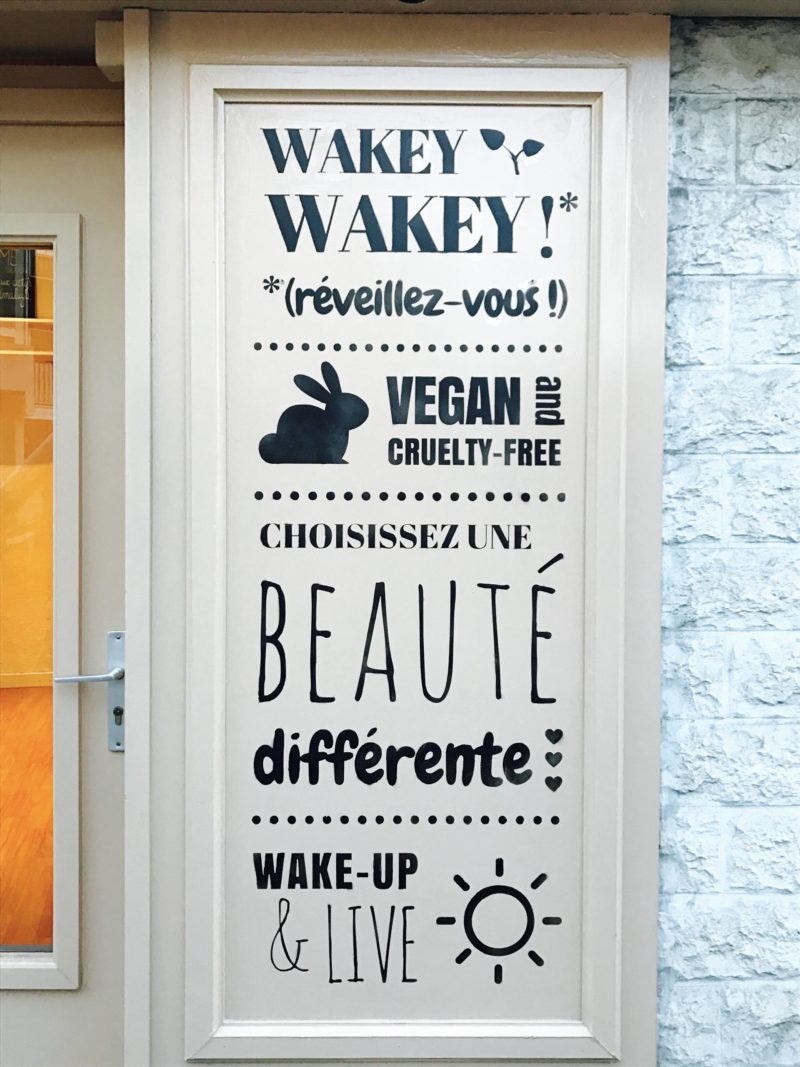 WAKEY
WAKEY !*
*(réveillez-vous !)
VEGAN and
CRUELTY-FREE
CHOISISSEZ UNE
BEAUTÉ
différente
WAKE-UP
& LIVE